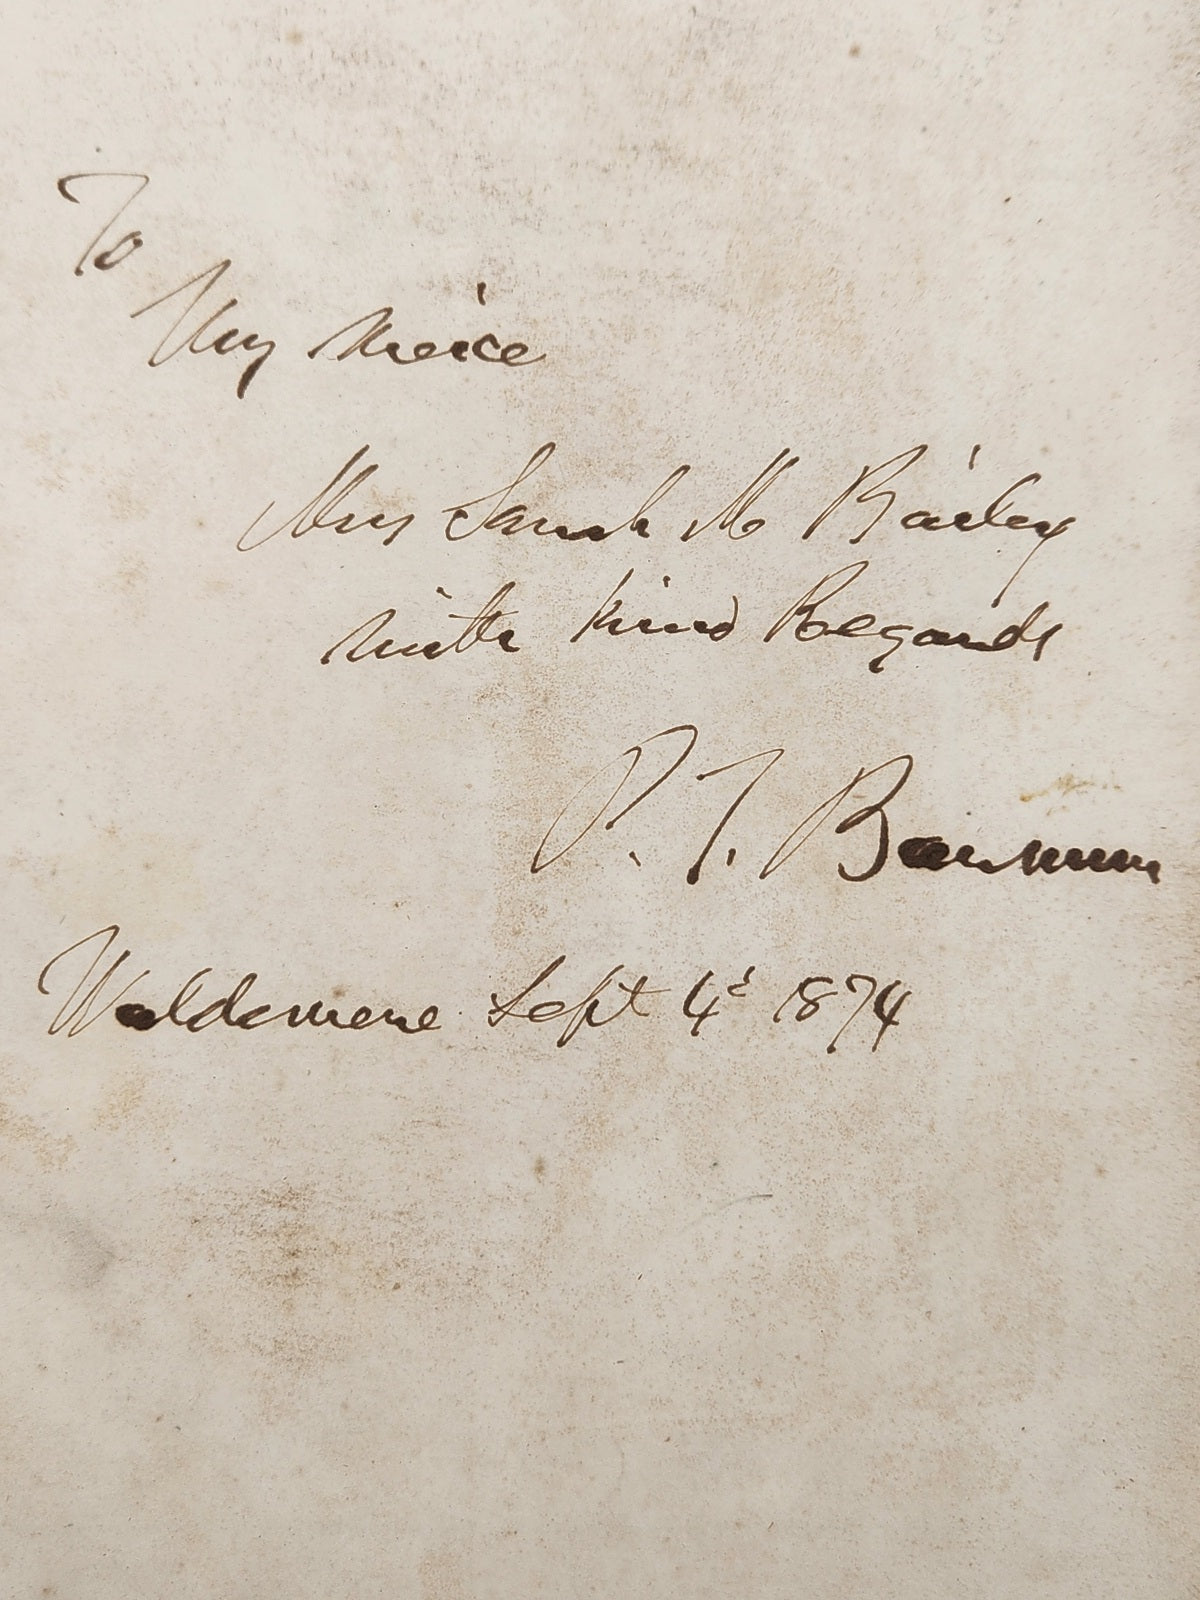 To
My neice
Mrs Sarah M Bailey
with kind Regards
P. T. Barnum
Waldemere Sept 4' 1874